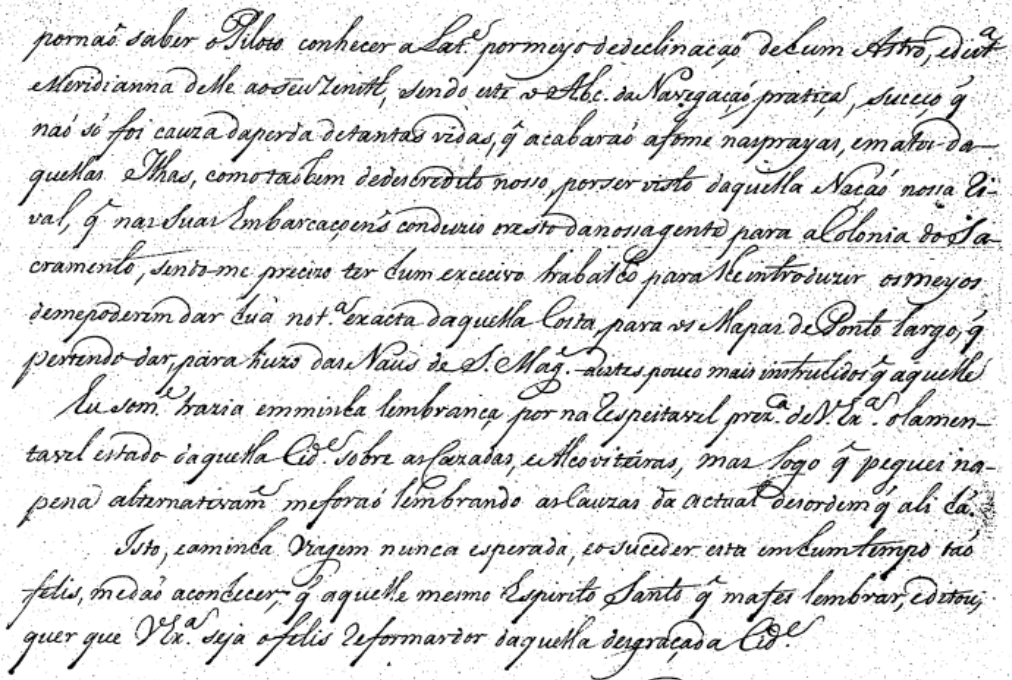 pornaõ saber oPiloto conhecer a Lat.ᵉ pormeyo dedeclinaçaõ dehum Astro, edist.ᵃ
Meridianna delle aoseu Zenith, sendo este o Abc. da Navegaçaõ pratica, suceço q̃
naõ só foi cauza daperda detantas vidas, q̃ acabaraõ afome nasprayas, ematos da-
quellas Ilhas, como taõbem dedescredito nosso, porser visto daquella Naçaõ nossa Ri-
val, q̃ nas suas Embarcaçoens conduzio oresto danossagente para a Colonia do Sa-
cramento, sendo-me precizo ter hum excecivo trabalho para lhe introduzir os meyos
demepoderem dar huã not.ᵃ exacta daquella Costa, para os Mapas de Ponto largo, q̃
pertendo dar, para huzo das Naus de S. Mag.ᵉ destes pouco mais instruidos q̃ aquelle
Eu som.ᵉ trazia emminha lembrança, por na Respeitavel prez.ᶜᵃ de V. Ex.ᵃ o lamen-
tavel estado daquella Cid.ᵉ sobre as Cazadas, e Alcoviteiras, mas logo q̃ peguei na-
pena alternativam.ᵉ meforaõ lembrando as Cauzas da actual desordem q̃ ali há.
Isto, eaminha Viagem nunca esperada, eo suceder esta emhum tempo taõ
felis, medaõ aconhecer, q̃ aquelle mesmo Espirito Santo q̃ mafes lembrar, editou,
quer que V Ex.ᵃ seja ofelis Reformardor daquella desgraçada Cid.ᵉ